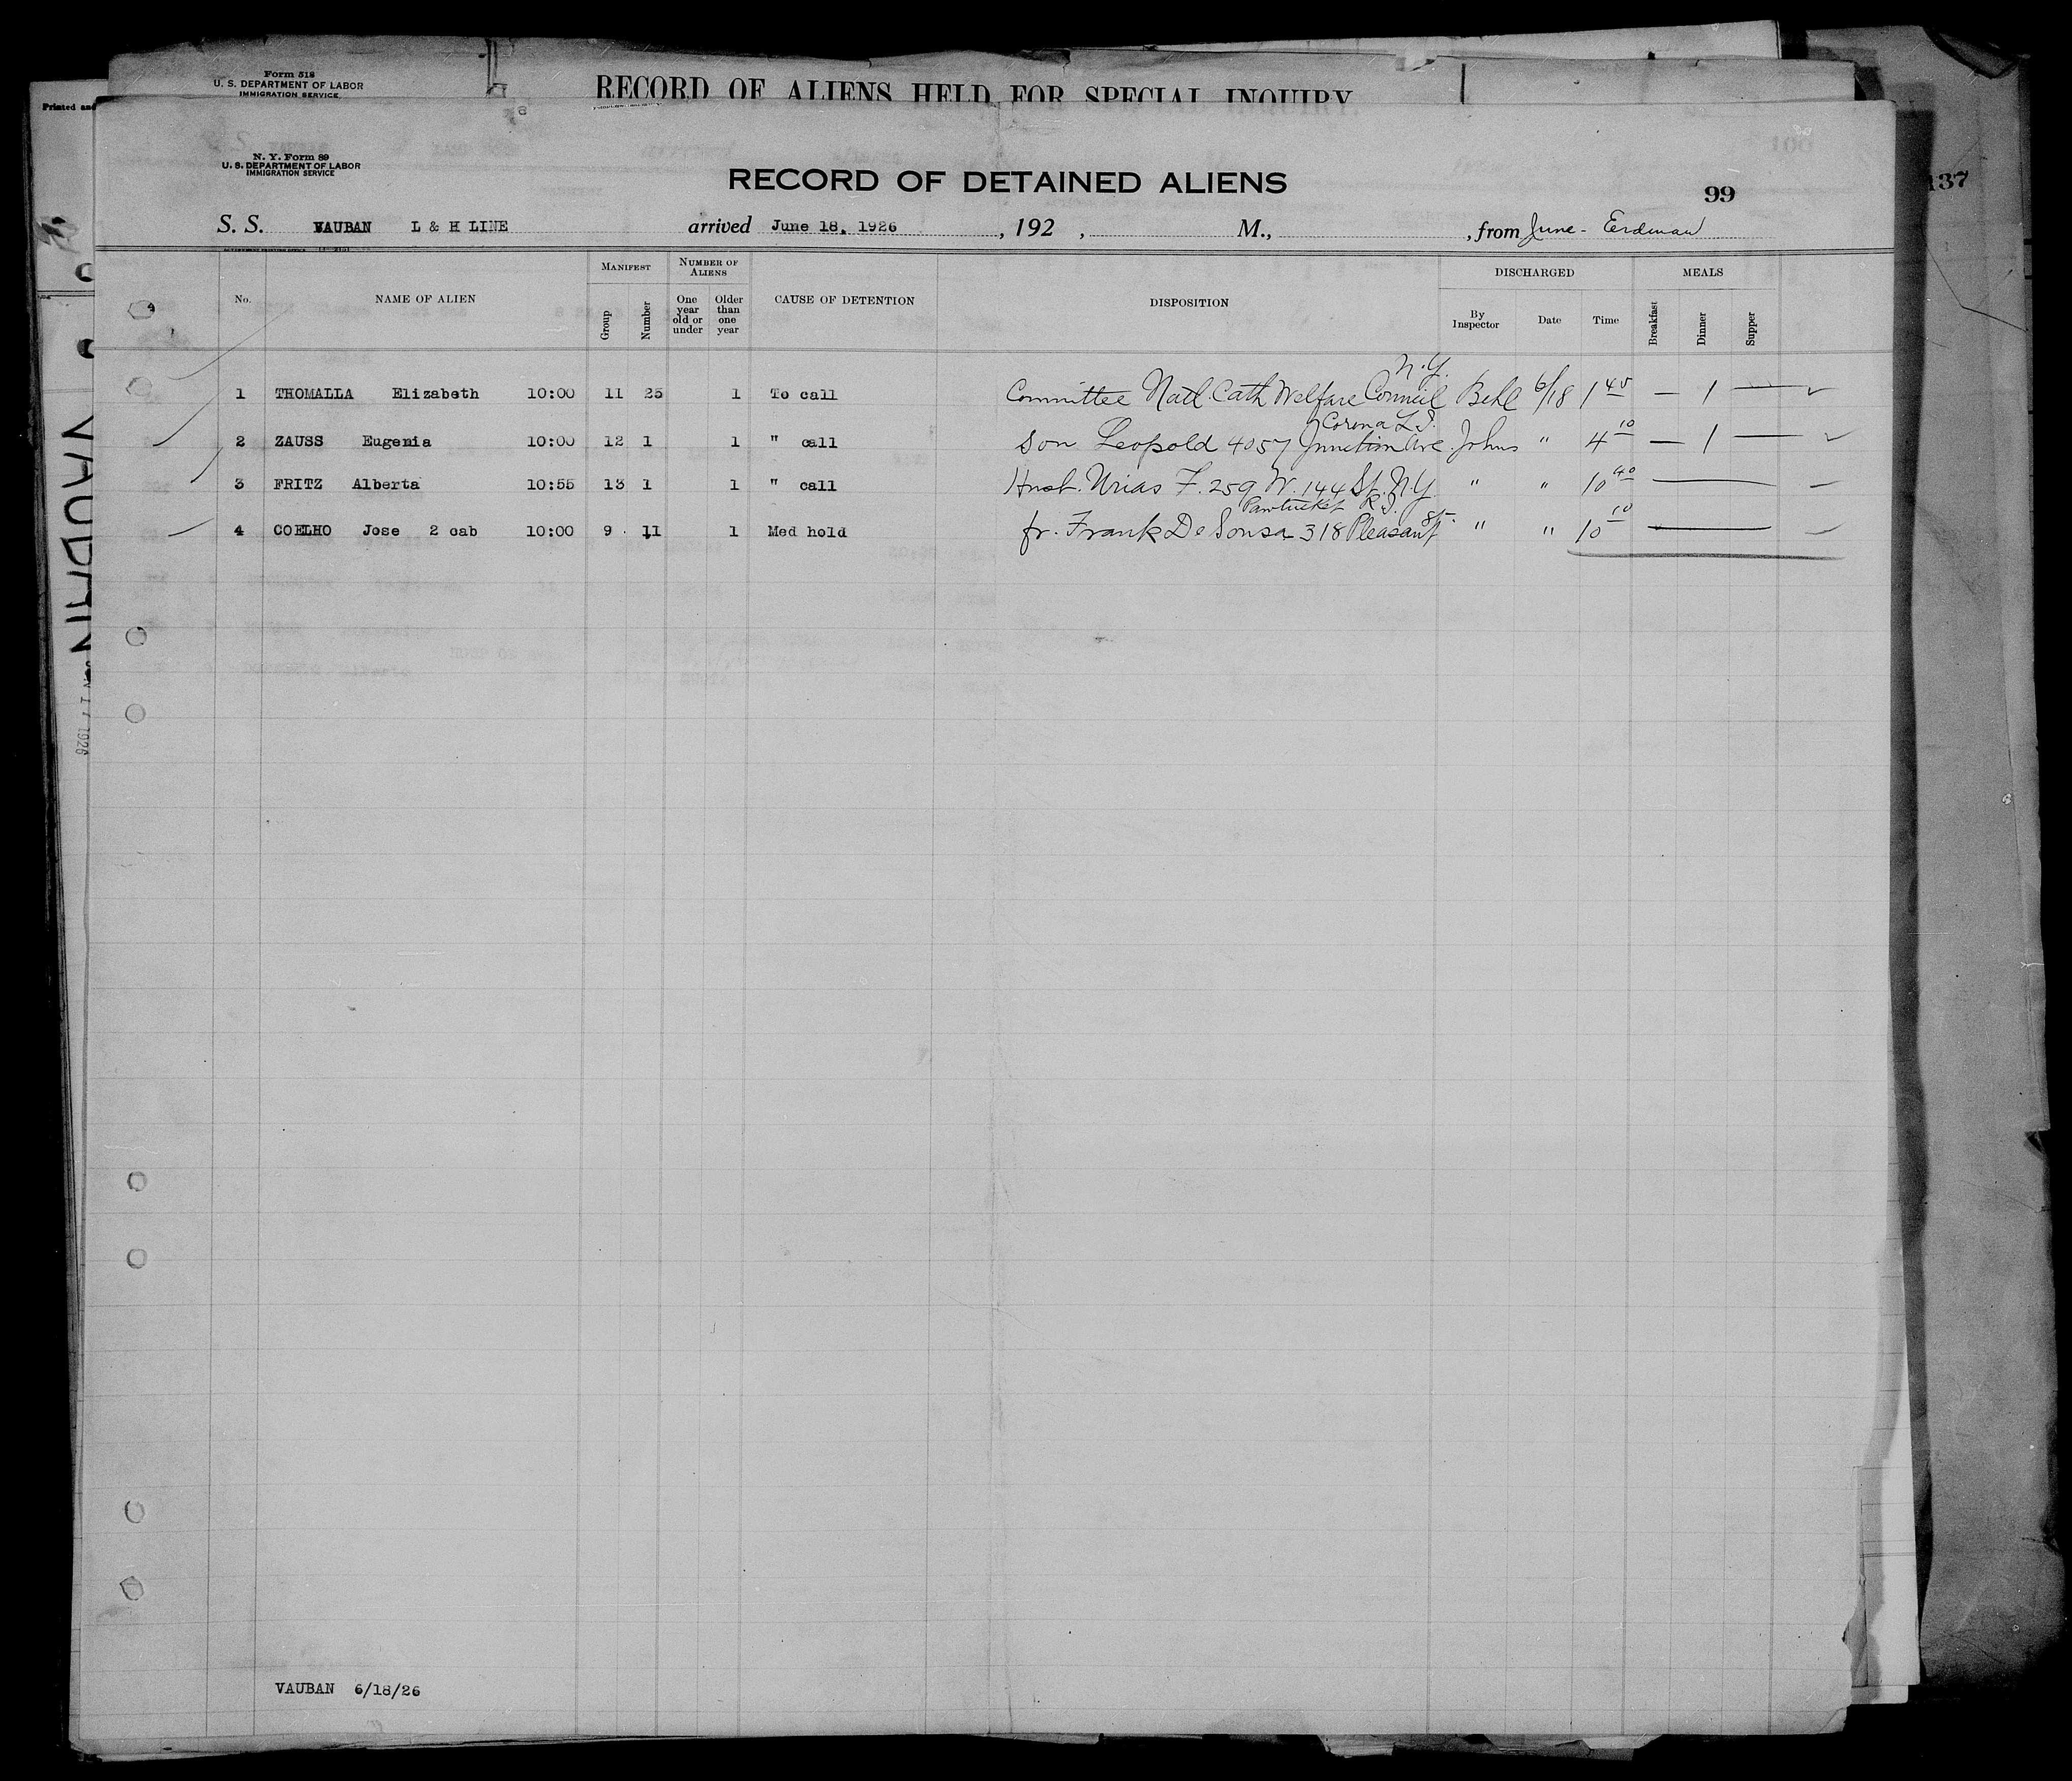 Form 518
U. S. DEPARTMENT OF LABOR
IMMIGRATION SERVICE
RECORD OF ALIENS HELD FOR SPECIAL INQUIRY.
Printed and
N. Y. Form 89
U. S. DEPARTMENT OF LABOR
IMMIGRATION SERVICE
RECORD OF DETAINED ALIENS
99
137
S. S. VAUBAN L & H LINE arrived June 18, 1926, 192 , M., , from June - Erdman
No. NAME OF ALIEN MANIFEST Group Number NUMBER OF ALIENS One year old or under Older than one year CAUSE OF DETENTION DISPOSITION DISCHARGED By Inspector Date Time MEALS Breakfast Dinner Supper
N.Y.
1 THOMALLA Elizabeth 10:00 11 25 1 To call Committee Natl. Cath Welfare Council 6/18 1 40 — 1 —
Corona L.I.
2 ZAUSS Eugenia 10:00 12 1 1 " call Son Leopold 4057 Junction Ave. Johns " 4 10 — 1 —
3 FRITZ Alberta 10:55 13 1 1 " call Husb. Urias F. 259 W. 144 St. N.Y " " 10 40 —
Pawtucket R.I.
4 COELHO Jose 2 cab 10:00 9 11 1 Med hold fr. Frank De Sousa 318 Pleasant St. " " 10 10 —
1926
VAUBAN 6/18/26